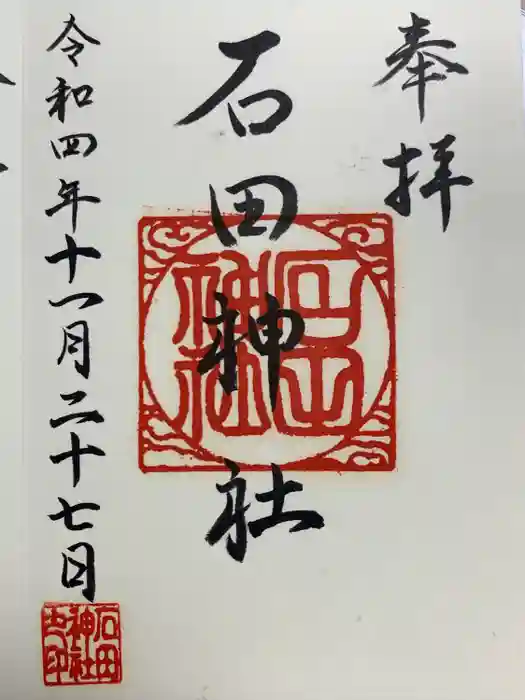 奉拝
石田神社
令和四年十一月二十七日
石田神社
石田
神社
之印